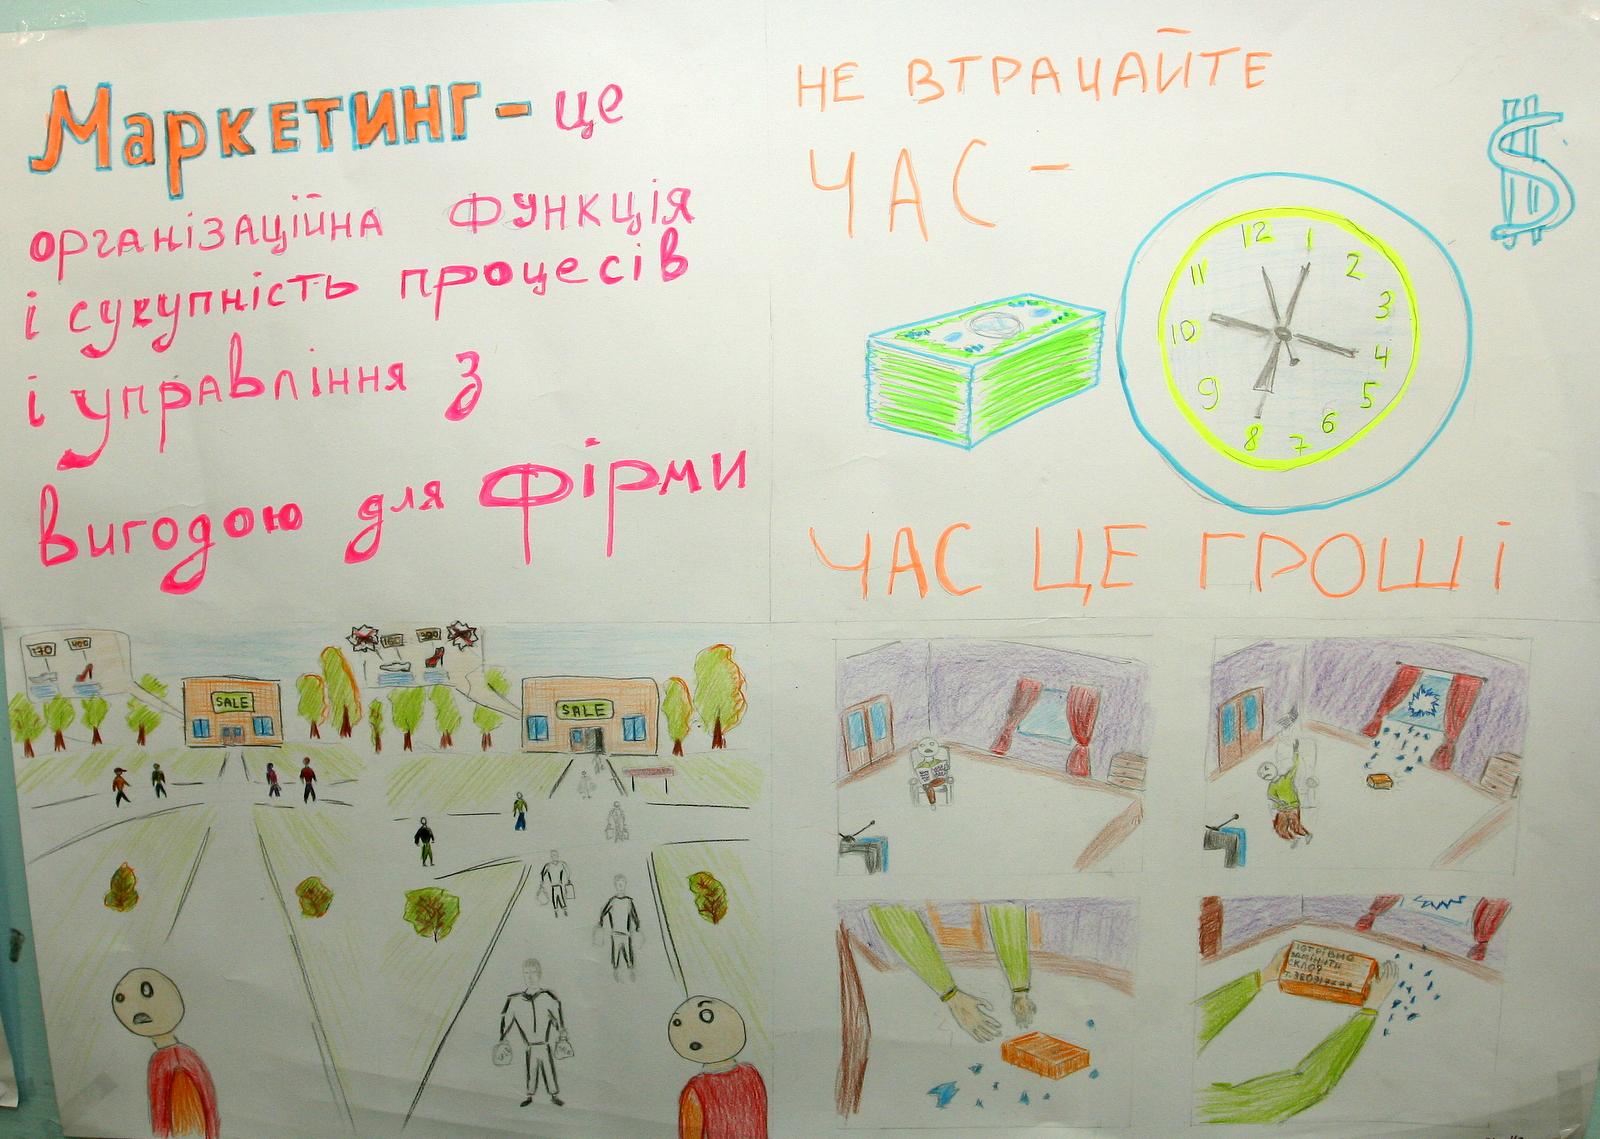 Маркетинг - це
організаційна функція
і сукупність процесів
і управління з
вигодою для фірми
НЕ ВТРАЧАЙТЕ
ЧАС -
$
12
1
2
3
4
5
6
7
8
9
10
11
ЧАС ЦЕ ГРОШІ
170
400
SALE
160
300
SALE
ПОТРІБНО
ЗАМІНИТИ
СКЛО?